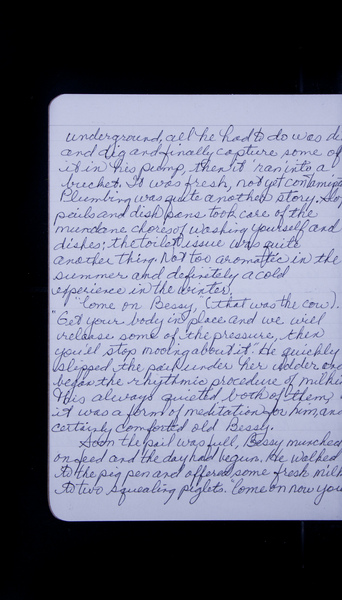 underground, all he had to do was di
and dig and finally capture some of
it in his pump, then it ran into a
bucket. It was fresh, not yet contamina
Plumbing was quite another story. Slop
pails and dish pans took care of the
mundane chores of washing yourself and
dishes; the toilet issue was quite
another thing. Not too aromatic in the
summer and definitely a cold
experience in the winter.
"Come on Bessy," (that was the cow).
"Get your body in place and we will
release some of the pressure, then
you'll stop mooing about it. He quickly
slipped the pail under her udder and
began the rhythmic procedure of milkin
This always quieted both of them,
it was a form of meditation for him, and
certainly comforted old Bessy.
Soon the pail was full, Bessy munched
on feed and the day had begun. He walked
to the pig pen and offered some fresh milk
to two squealing piglets. "Come on now you